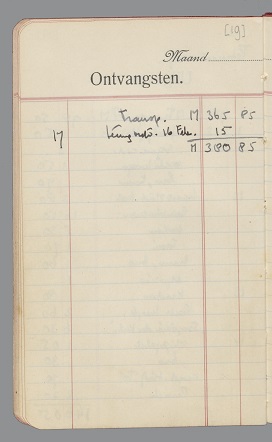 [19]
Maand
Ontvangsten.
Transp. M 365 85
17 terug ndo. 16 Feb. 15
M 380 85